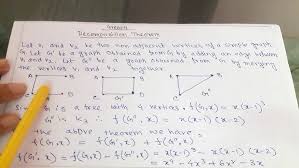 Decomposition Theorem
Let v₁ and v₂ be two non adjacent vertices of a simple graph
G. Let G' be a graph obtained from G by adding an edge between
v₁ and v₂. Let G'' be a graph obtained from G by merging
the vertices v₁ and v₂ together
A B A B
G' G''
Since G is a tree with 4 vertices, f(G,x) = x(x-1)³
G'' is K₃ ∴ f(G'',x) = x(x-1)(x-2)
the above theorem we have:
f(G,x) = f(G',x) + f(G'',x)
f(G',x) = f(G,x) - f(G'',x) = x(x-1)³ - x(x-1)(x-2)
= x⁴ - 4x³ + 6x² - 3x